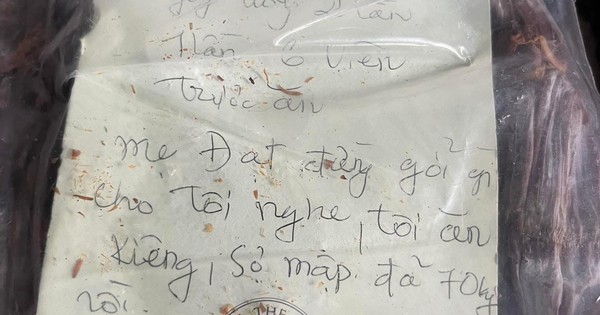 uống 2 lần
lần 6 viên
trước ăn
mẹ Đạt đừng gởi gì
cho tôi nghe, tôi ăn
Kiêng, Sợ mập đã 70ký
rồi.
THE